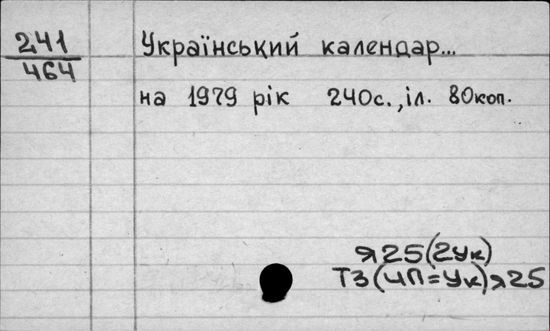 241
464
Український календар...
на 1979 рік 240с., іл. 80коп.
я25(2Ук)
Т3(4П=Ук)я25